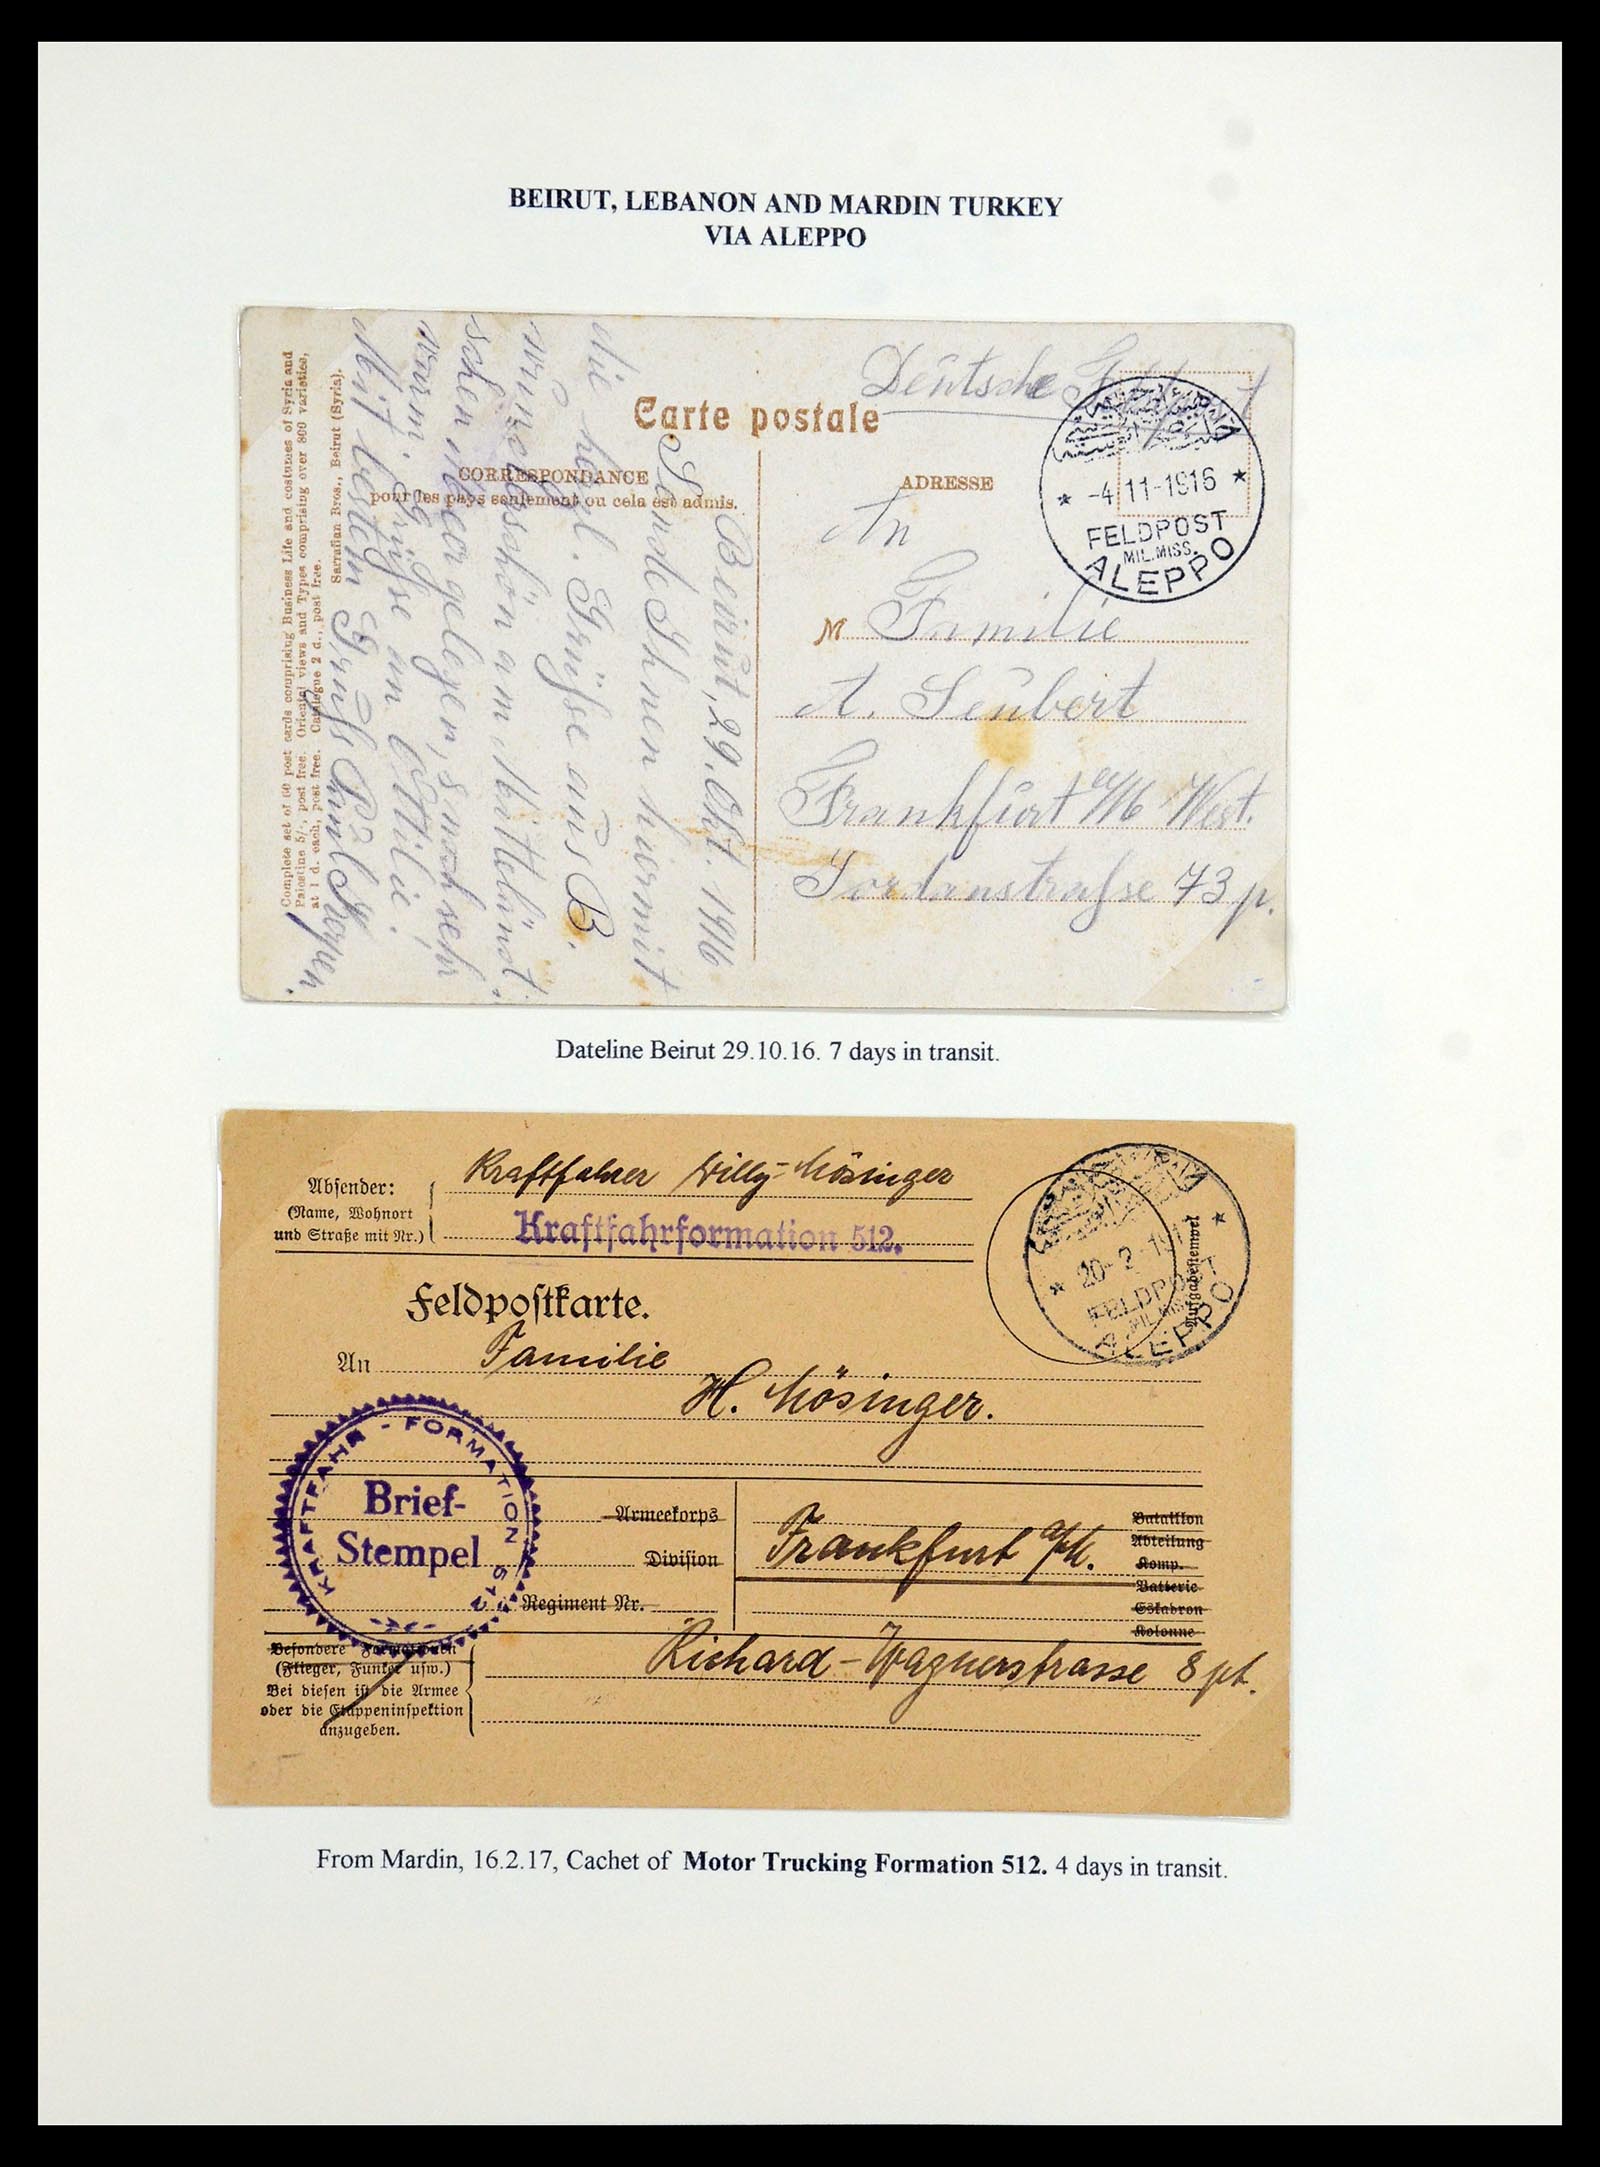 BEIRUT, LEBANON AND MARDIN TURKEY
VIA ALEPPO
Complete set of 60 post cards comprising Business Life and costumes of Syria and
Palestine 5/-, post free. Oriental views and Types comprising over 800 varieties,
at 1 d. each, post free. Catalogue 2 d., post free.
Sarrafian Bros., Beirut (Syria).
Carte postale
CORRESPONDANCE
pour les pays seulement ou cela est admis.
ADRESSE
Beirut, 29. Okt. 1916
Sende Ihnen hiermit
die hzl. Grüsse aus B.
wunderschön am Mittelländ.
schen Meer gelegen, s. noch sehr
warm. Grüsse an Ottilie.
Mit besten Gruss
Deutsche
-4 11-1916
FELDPOST
MIL.MISS.
ALEPPO
An
M Familie
A. Seubert
Frankfurt a/M West.
Jordanstrasse 73 p.
Dateline Beirut 29.10.16. 7 days in transit.
Absender:
(Name, Wohnort
und Straße mit Nr.)
Kraftfahrer Willy Mösinger
Kraftfahrformation 512.
20-2
FELDPOST
MIL.MISS.
ALEPPO
Aufgabestempel
Feldpostkarte.
An Familie
H. Mösinger.
KRAFTFAHR-FORMATION 512
Brief-
Stempel
Armeekorps
Division
Regiment Nr.
Frankfurt a/M.
Bataillon
Abteilung
Komp.
Batterie
Eskadron
Kolonne
Besondere Formationen
(Flieger, Funker usw.)
Bei diesen ist die Armee
oder die Etappeninspektion
anzugeben.
Richard-Wagnerstrasse 8 pt.
From Mardin, 16.2.17, Cachet of Motor Trucking Formation 512. 4 days in transit.